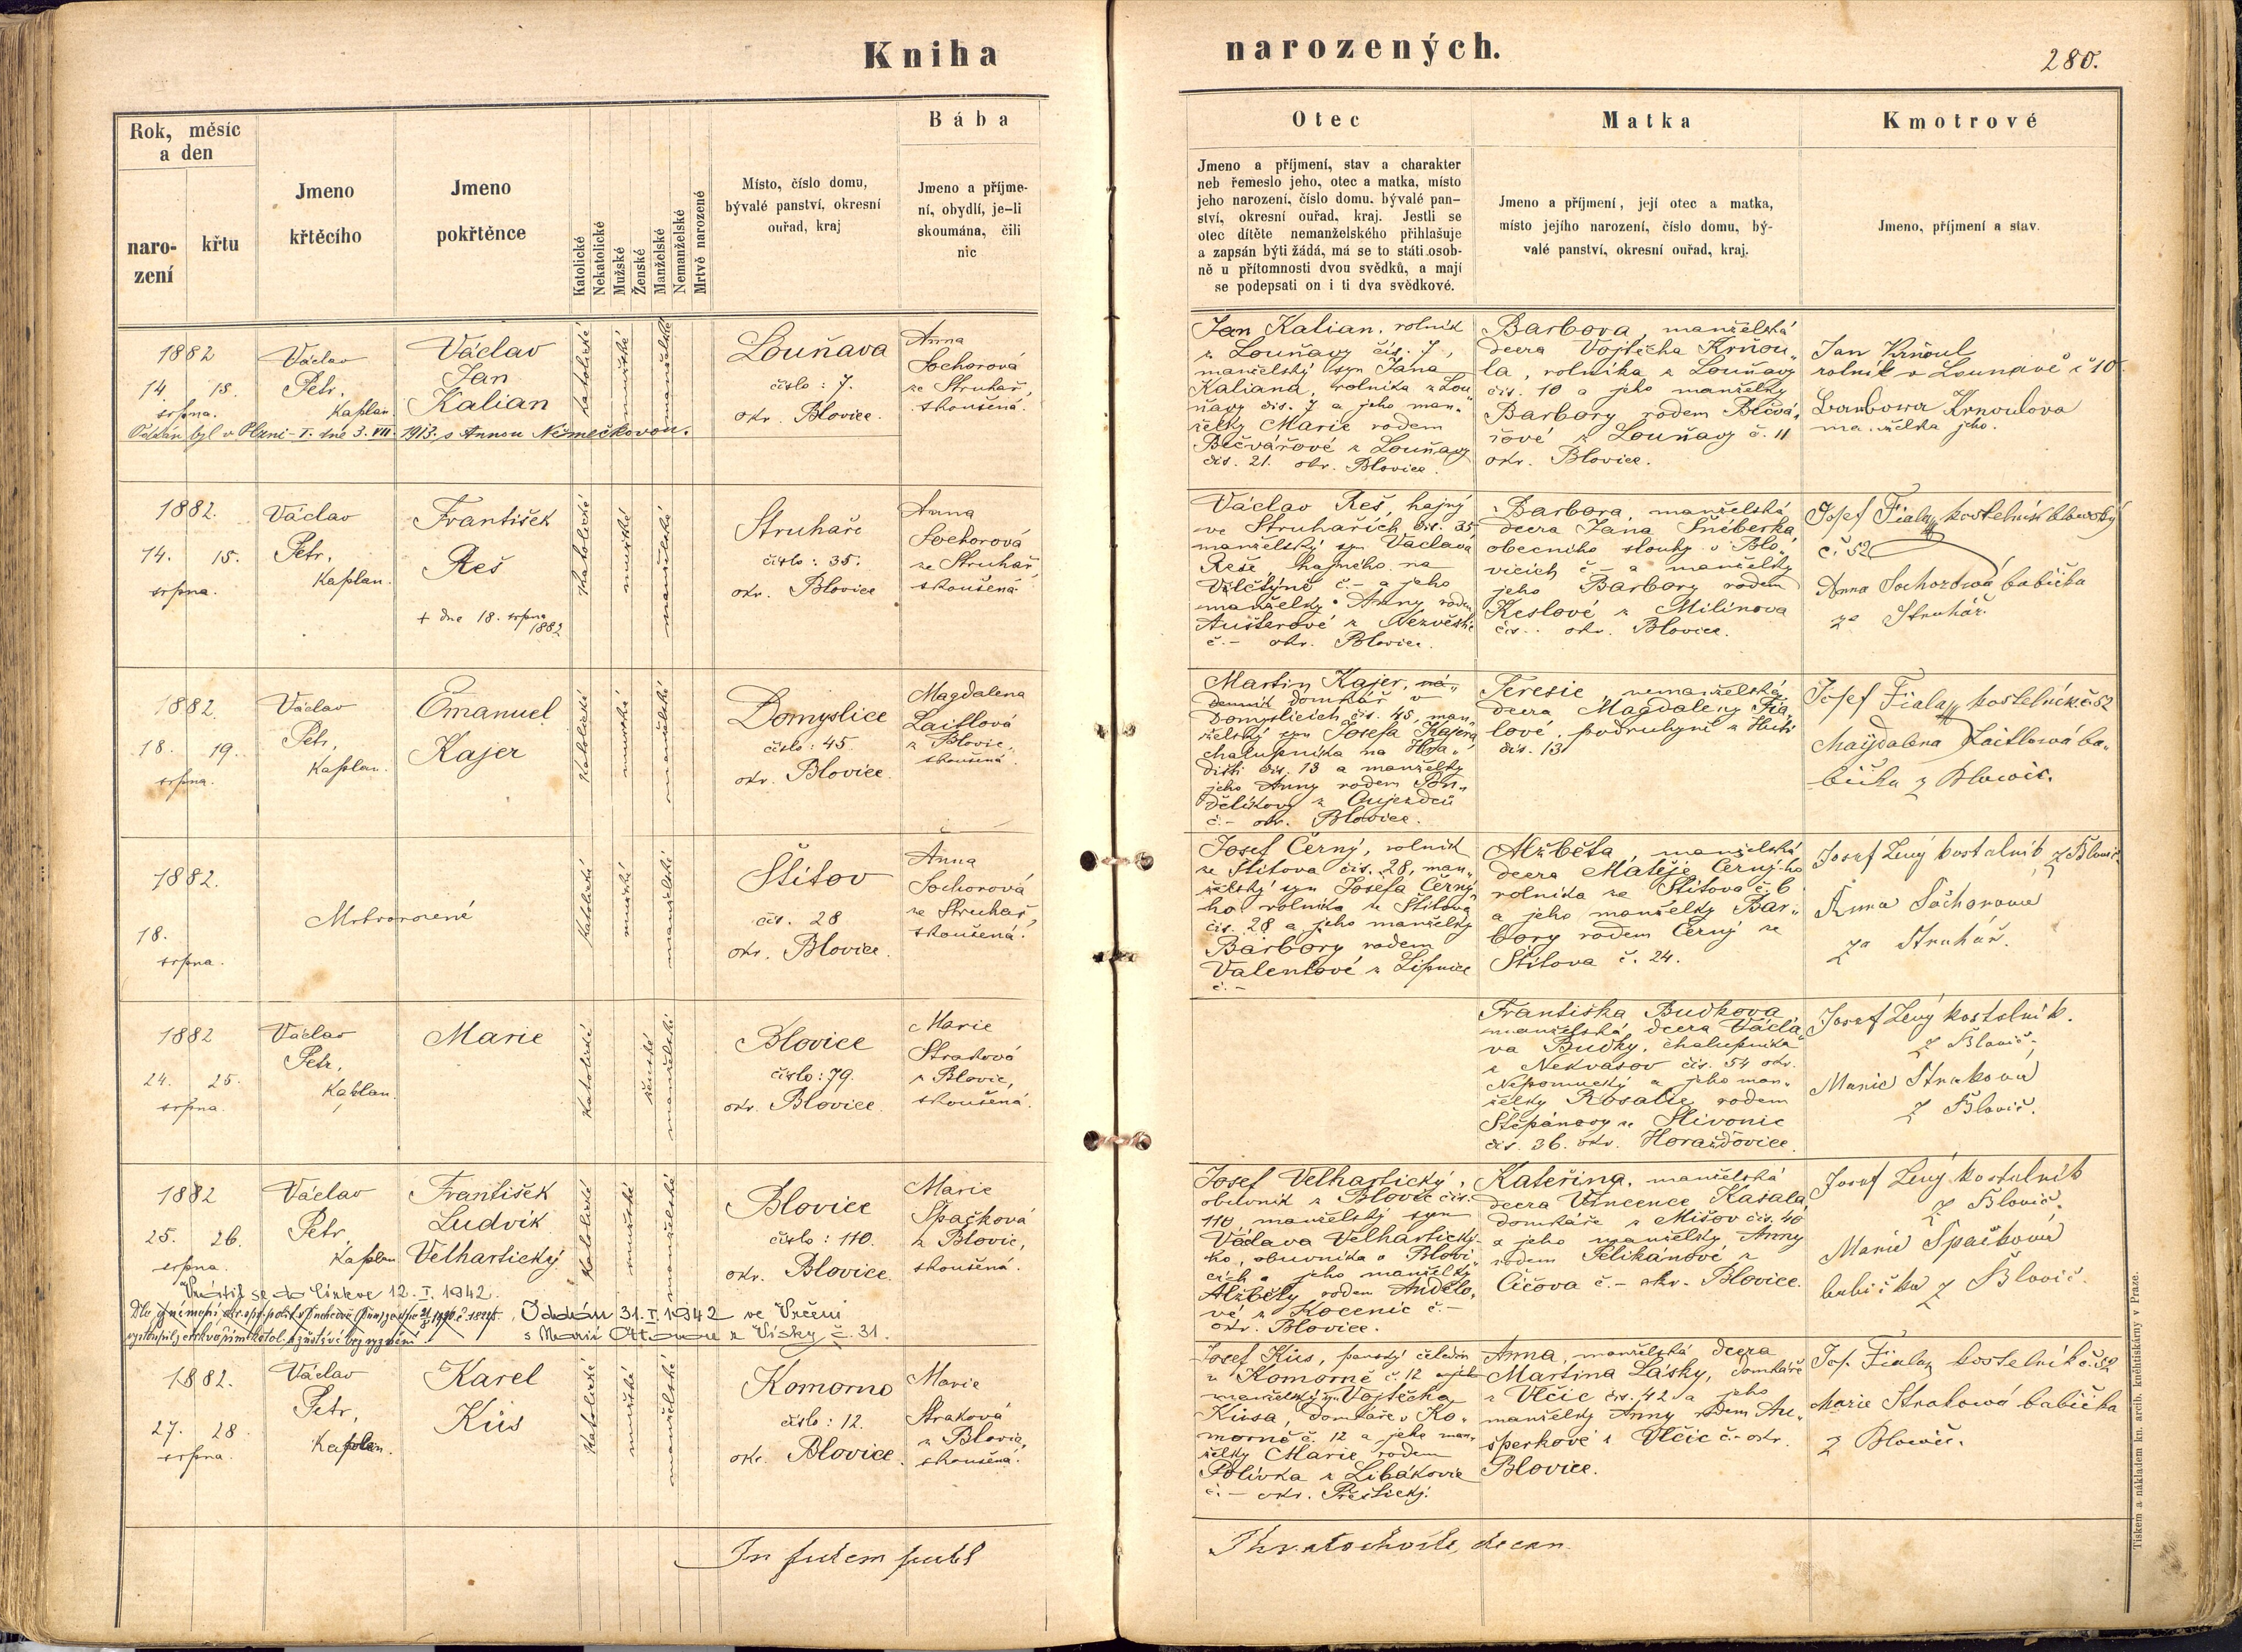 Kniha narozených.
280.
Rok, měsíc
a den
naro-
zení
křtu
Jmeno
křtěcího
Jmeno
pokřtěnce
Katolické
Nekatolické
Mužské
Ženské
Manželské
Nemanželské
Mrtvě narozené
Místo, číslo domu,
bývalé panství, okresní
ouřad, kraj
Bába
Jmeno a příjme-
ní, obydlí, je-li
skoumána, čili
nic
Otec
Jmeno a příjmení, stav a charakter
neb řemeslo jeho, otec a matka, místo
jeho narození, číslo domu, bývalé pan-
ství, okresní ouřad, kraj. Jestli se
otec dítěte nemanželského přihlašuje
a zapsán býti žádá, má se to státi osob-
ně u přítomnosti dvou svědků, a mají
se podepsati on i ti dva svědkové.
Matka
Jmeno a příjmení, její otec a matka,
místo jejího narození, číslo domu, bý-
valé panství, okresní ouřad, kraj.
Kmotrové
Jmeno, příjmení a stav.
1882
14. 15.
srpna.
Václav
Petr,
kaplan.
Václav
Jan
Kalian
katolické
mužské
manželské
Louňava
číslo: 7.
okr. Blovice.
Anna
Sochorová
ze Struhař,
zkoušená.
Oddán byl v Plzni-I. dne 3. VII. 1913. s Annou Němečkovou.
Jan Kalian, rolník
z Louňavy čís. 7,
manželský syn Jana
Kaliana, rolníka z Lou„
ňavy čís. 7 a jeho man„
želky Marie rodem
Bečvářové z Louňavy
čís. 21. okr. Blovice.
Barbora, manželská
dcera Vojtěcha Krňou„
la, rolníka z Louňavy
čís. 10 a jeho manželky
Barbory rodem Bečvá„
řové z Louňavy č. 11
okr. Blovice.
Jan Krňoul
rolník v Lounavě č 10
Barbora Krnoulova
manželka jeho.
1882.
14. 15.
srpna.
Václav
Petr,
kaplan.
František
Reš
+ dne 18. srpna
1882
katolické
mužské
manželské
Struhaře
číslo: 35.
okr. Blovice
Anna
Sochorová
ze Struhař,
zkoušená
Václav Reš, hajný
ve Struhařích čís. 35
manželský syn Václava
Reše, hajného na
Vlčtýně č- a jeho
manželky Anny rodem
Aušterové z Nezvěstic
č.- okr. Blovice.
Barbora, manželská
dcera Jana Šnéberka
obecního slouhy v Blo„
vicích č- a manželky
jeho Barbory rodem
Keslové z Milínova
čís.. okr. Blovice.
Josef Fiala kostelník blowský
č. 52
Anna Sochorowá babička
ze Struhář.
1882.
18. 19.
srpna.
Václav
Petr,
kaplan.
Emanuel
Kajer
katolické
mužské
manželské
Domyslice
číslo: 45
okr. Blovice.
Magdalena
Laitlová
z Blovic,
zkoušená.
Martin Kajer, ná„
denník domkář v
Domyslicích čís. 45, man„
želský syn Josefa Kajera
chalupníka na Hra„
dišti čís. 13 a manželky
jeho Anny rodem Pon„
dělíkovy z Aujezdců
č.- okr. Blovice.
Teresie, nemanželská
dcera Magdaleny Fia„
lové, podruhyně z Huti
čís. 13
Josef Fiala kostelník č 52
Maydalena Laitlowá ba„
bička z Blowic.
1882.
18.
srpna.
Mrtvorozené
katolické
mužské
manželské
Štítov
čís. 28
okr. Blovice.
Anna
Sochorová
ze Struhař,
zkoušená.
Josef Černý, rolník
ze Štítova čís. 28, man„
želský syn Josefa Černé„
ho rolníka ze Štítova
čís. 28 a jeho manželky
Barbory rodem
Valentové z Lipnice
č.-
Alžběta manželská
dcera Matěje Černýho
rolníka ze Štítova č. 6
a jeho manželky Bar„
bory rodem Černý ze
Štítova č. 24.
Josef Lený kostelník z Blovic,
Anna Sochorowa
ze Struhář.
1882
24. 25.
srpna.
Václav
Petr,
kaplan.
Marie
katolické
ženské
manželské
Blovice
číslo: 79.
okr. Blovice.
Marie
Straková
z Blovic,
zkoušená.
Františka Budkova
manželská, dcera Václa„
va Budky, chalupníka
z Nekvasov čís. 54 okr.
Nepomucký a jeho man„
želky Rosalie rodem
Štěpánovy ze Slivonic
čís. 36. okr. Horažďovice.
Josef Lený kostelník.
z Blovic,
Marie Strakowa
z Blovic.
1882
25. 26.
srpna.
Václav
Petr,
kaplan
František
Ludvík
Velhartický
katolické
mužské
manželské
Blovice
číslo: 110.
okr. Blovice.
Marie
Špačková
z Blovic,
zkoušená.
Vrátil se do církve 12. I. 1942.
Oddán 31. I. 1942 ve Vrčeni
s Marií z Vísky č. 31.
Josef Velhartický,
obuvník z Blovic čís.
110, manželský syn
Václava Velhartické-
ho, obuvníka v Blovi„
cích a jeho manželky
Alžběty rodem Andělo„
vé z Kocenic č.-
okr. Blovice.
Kateřina, manželská
dcera Vincence Kasala
domkáře z Mišov čís. 40
a jeho manželky Anny
rodem Pelikánové z
Číčova č.- okr. Blovice.
Josef Lený kostelník
z Blovic.
Marie Špačkowá
babička z Blovic.
1882.
27. 28.
srpna.
Václav
Petr,
kaplan.
Karel
Kůs
katolické
mužské
manželské
Komorno
číslo: 12.
okr. Blovice.
Marie
Straková
z Blovic,
zkoušená.
Josef Kůs, panský čeledín
z Komorně č. 12
manželský syn Vojtěcha
Kůsa, domkáře v Ko„
morně č. 12 a jeho man„
želky Marie rodem
Polívka z Libákovic
č.- okr. Přeštický.
Anna, manželská dcera
Martina Lásky, domkáře
z Vlčic čís. 42 a jeho
manželky Anny rodem Au„
šperkové z Vlčic č.- okr.
Blovice.
Jos. Fiala kostelník č. 52
Marie Strakowá babička
z Blowic.
In fidem publ
Tiskem a nákladem kn. arcib. kněhtiskárny v Praze.